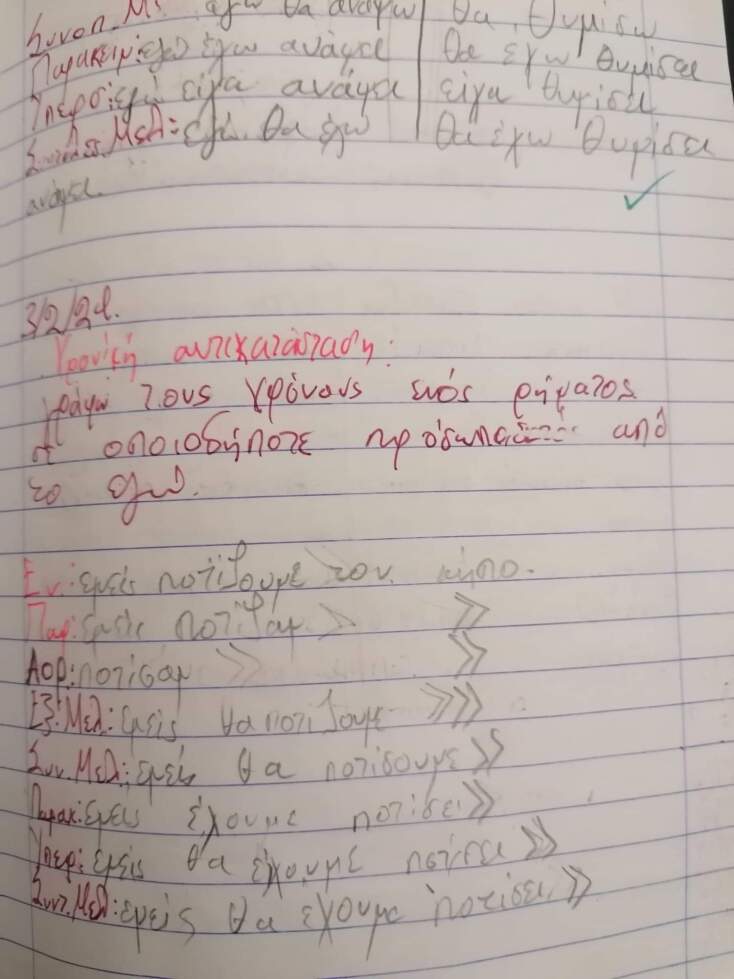 Συνοπ. Μελ: εγώ θα ανάψω | θα θυμίσω
Παρακειμ: εγώ έχω ανάψει | θα έχω θυμίσει
Υπερσ: εγώ είχα ανάψει | είχα θυμίσει
Συντελεσ. Μελ: εγώ θα έχω | θα έχω θυμίσει
ανάψει.
3/2/24.
Χρονική αντικατάσταση:
γράφω τους χρόνους ενός ρήματος
σε οποιοδήποτε πρόσωπο από
το εγώ.
Εν: εμείς ποτίζουμε τον κήπο.
Παρ: εμείς ποτίζαμ >> >>
Αορ: ποτίσαμ >> >>
Εξ. Μελ: εμείς θα ποτίζουμε >>>
Συν. Μελ: εμείς θα ποτίσουμε >>
Παρακ: εμεις έχουμε ποτίσει >>
Υπερ: εμείς θα έχουμε ποτίσει >>
Συντ. Μελ: εμείς θα έχουμε ποτίσει >>